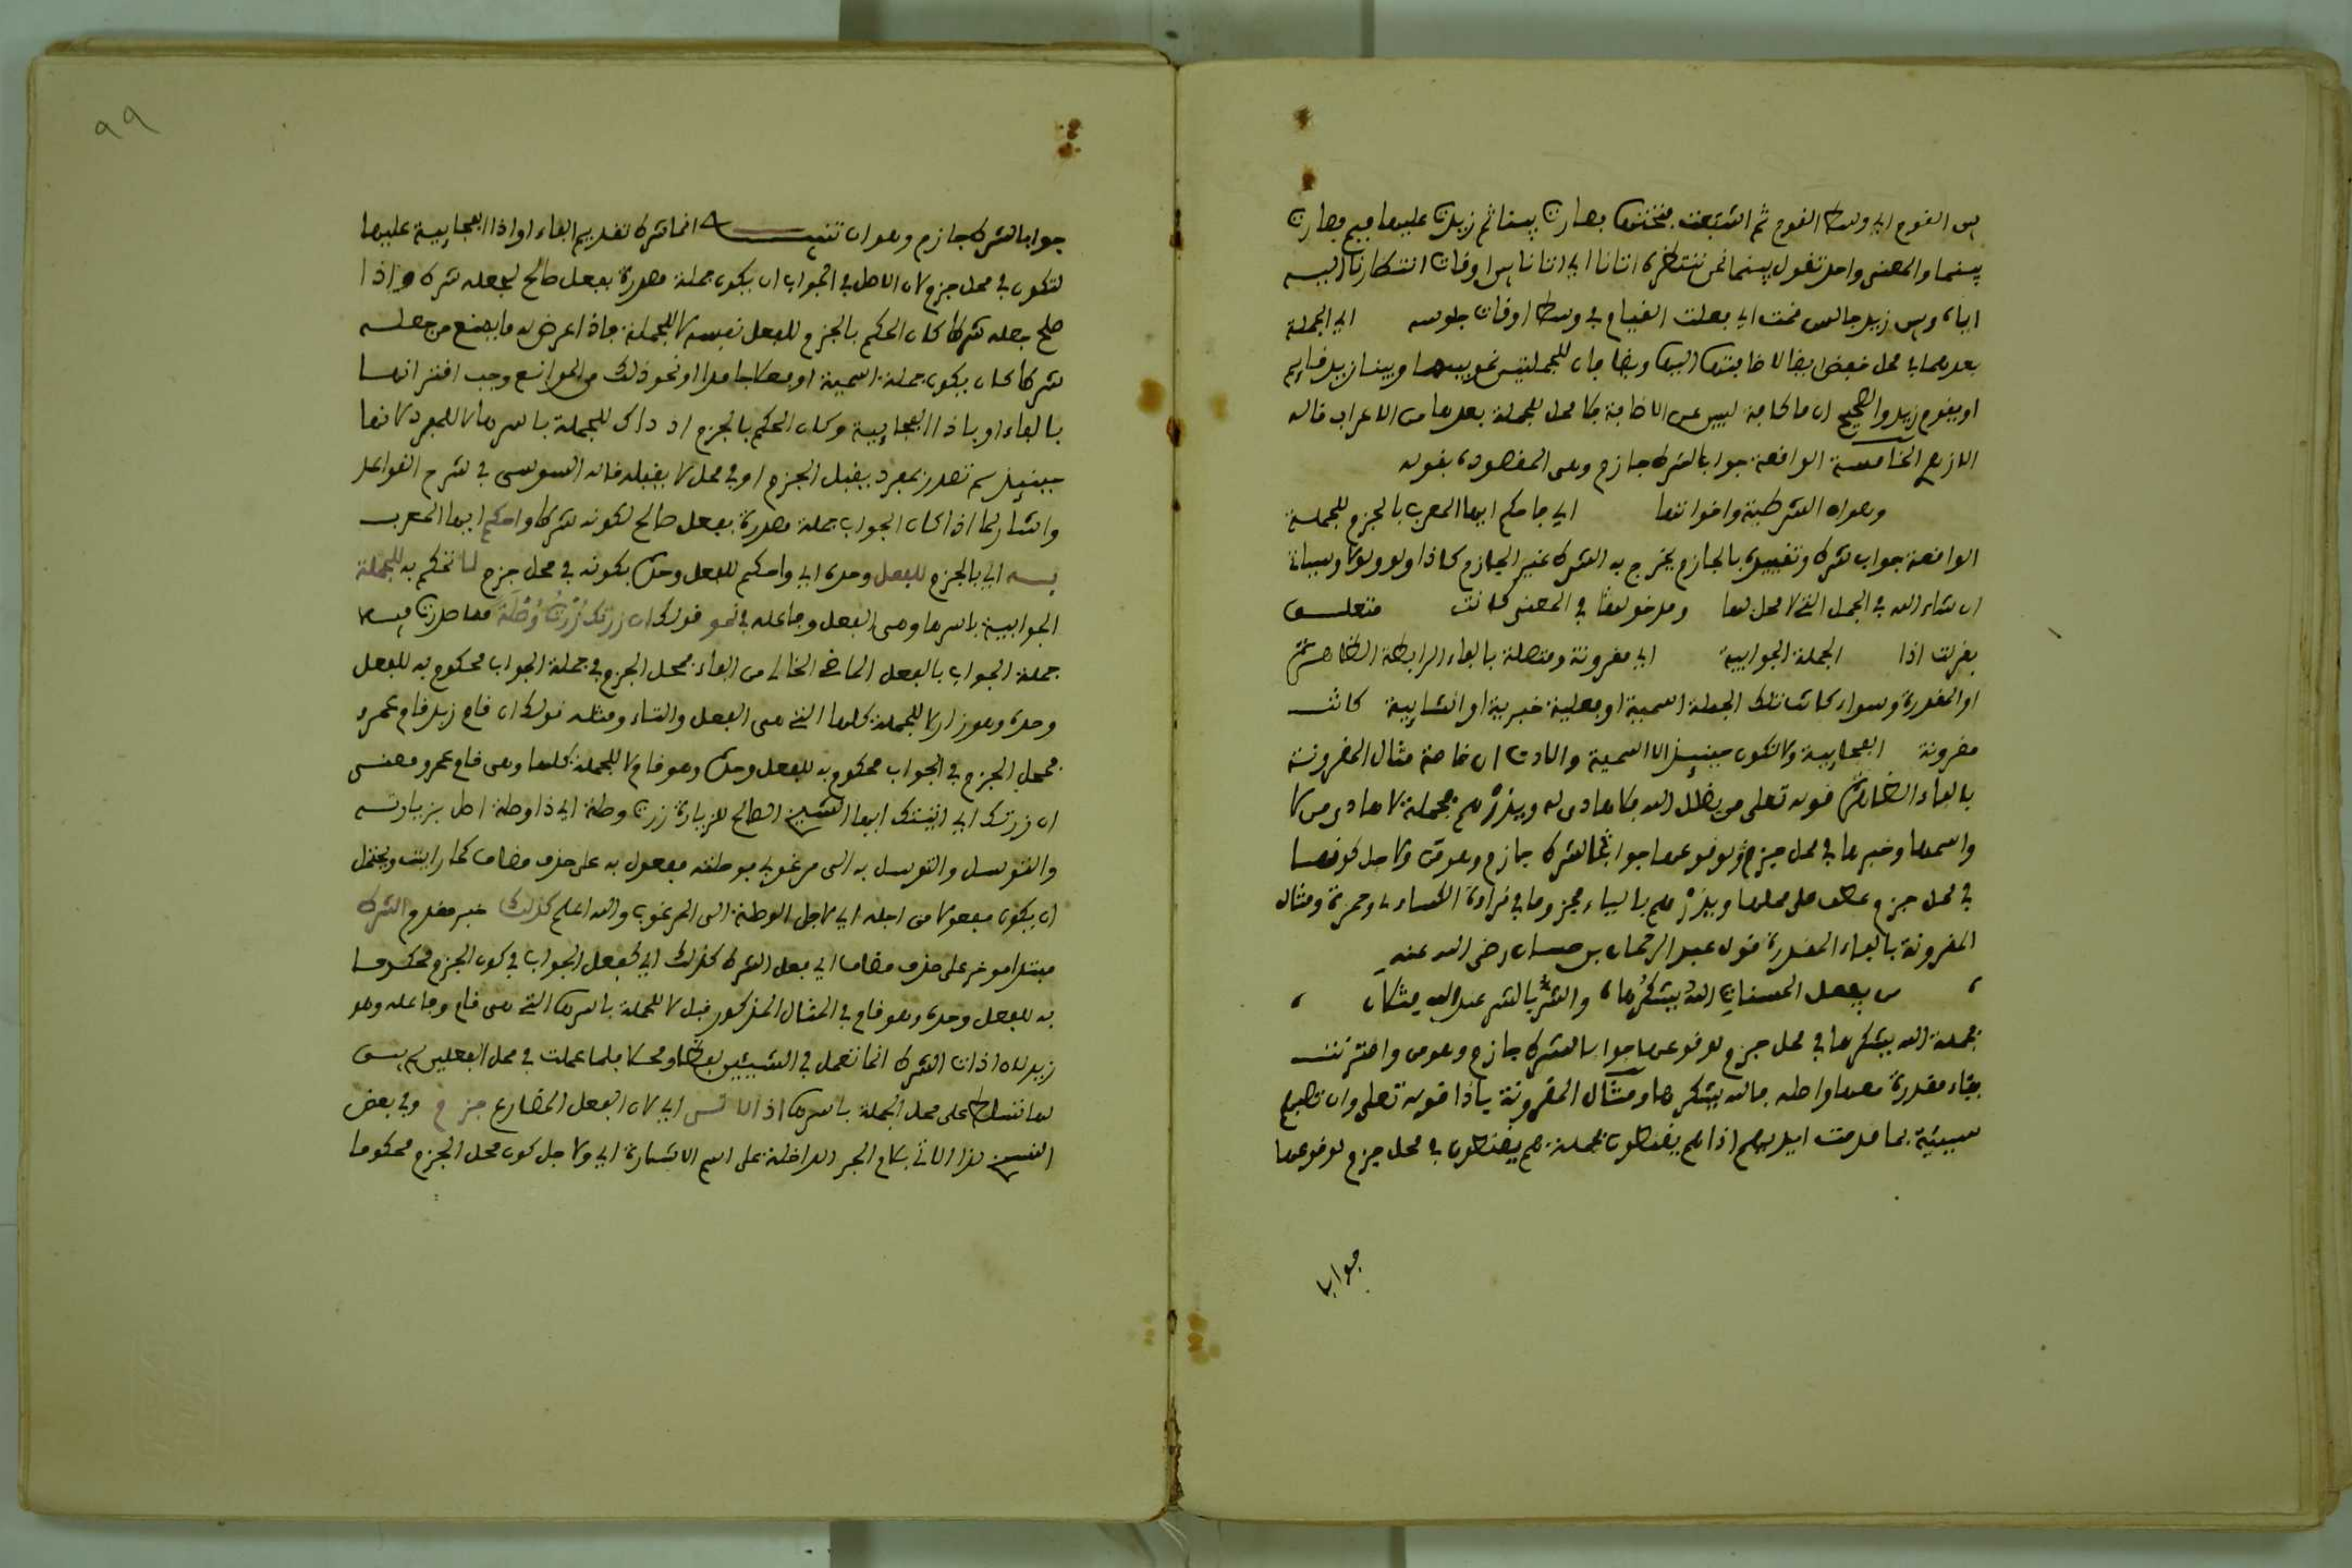 بين القوم اي وسط القوم ثم اشبعت فتحتها بصارت بينا ثم زيدت عليها ميم بصارت
بينما والمعنى واحد تقول بينما نحن ننتظره اتانا اي اتانا بين اوقات انتظارنا
اياه وبين زيد جالس قمت اي بعلت القيام في وسط اوقات جلوسه اي الجملة
بعدهما في محل خفض ايضا لاضافتها اليها ويضافان للجملتين نحو بينما وبينا زيد قايم
او يقوم زيد والصحيح ان ما كافة لبين عن الاضافة فلا محل للجملة بعدها من الاعراب قاله
الازهري الخامسة الواقعة جوابا لشرط جازم وهي المقصودة بقوله
وهو ان الشرطية واخواتها اي فاحكم ايها المعرب بالجزم للجملة
الواقعة جواب شرط وتقييده بالجازم يخرج به الشرط غير الجازم كاذا ولو ولولا وسياتي
ان شاء الله في الجمل التي لا محل لها ومدخولها في المعنى كانت متعلق
بقرنت اذا الجملة الجوابية اي مقرونة ومتصلة بالفاء الرابطة الظاهرة
او المقدرة وسواء كانت تلك الجملة اسمية او فعلية خبرية او انشايية كانت
مقرونة الفجايية ولا تكون حينيذ الا اسمية والاداة ان خاصة مثال المقرونة
بالفاء الظاهرة قوله تعلى من يضلل الله فلا هادي له ويذرهم فجملة لا هادي من لا
واسمها وخبرها في محل جزم لوقوعها جوابا لشرط جازم وهو من ولاجل كونها
في محل جزم عطف على محلها ويذرهم بالياء مجزوما في قراءة الكساءي وحمزة ومثال
المقرونة بالفاء المقدرة قول عبد الرحمان بن حسان رضي الله عنه
من يفعل الحسنات الله يشكرها ، والشر بالشر عند الله مثلان
فجملة الله يشكرها في محل جزم لوقوعها جوابا لشرط جازم وهو من واقترنت
بفاء مقدرة معها واصله فالله يشكرها ومثال المقرونة باذا قوله تعلى وان تصبهم
سيئة بما قدمت ايديهم اذا هم يقنطون فجملة هم يقنطون في محل جزم لوقوعها
جوابا
٩٩
جوابا لشرط جازم وهو ان تنبيه انما شرط تقديم الفاء او اذا الفجايية عليها
لتكون في محل جزم لان الاصل في الجواب ان يكون جملة مصدرة بفعل صالح لجعله شرطا واذا
صلح جعله شرطا كان الحكم بالجزم للفعل نفسه لا للجملة فاذا عرض له ما يمنع من جعله
شرطا كان يكون جملة اسمية او فعلا جامدا او نحو ذلك من الموانع وجب اقترانها
بالفاء او باذا الفجايية وكان الحكم بالجزم اذ ذاك للجملة باسرها لا للمفرد لانها
حينيذ لم تصدر بمفرد يقبل الجزم او في محل لا يقبله قاله السوسي في شرح القواعد
واشار لما اذا كان الجواب جملة مصدرة بفعل صالح لكونه شرطا واحكم ايها المعرب
به اي بالجزم للفعل وحده اي واحكم للفعل وحده بكونه في محل جزم لا تحكم به للجملة
الجوابية باسرها وهي الفعل وفاعله في نحو قولك ان زرتك زرت وصلة مما صدرت فيه
جملة الجواب بالفعل الماضي الخالي من الفاء فمحل الجزم في جملة الجواب محكوم به للفعل
وحده وهو زار لا للجملة كلها التي هي الفعل والتاء ومثله قولك ان قام زيد قام عمرو
فمحل الجزم في الجواب محكوم به للفعل وحده وهو قام لا للجملة كلها وهي قام عمرو ومعنى
ان زرتك اي اتيتك ايها الشيخ الصالح للزيارة زرت وصلة اي ذا وصلة اصل بزيارته
والتوسل والتوسل به الى مرغوبي فوصلته مفعول به على حذف مضاف كما رايت ويحتمل
ان يكون مفعولا من اجله اي لاجل الوصلة الى المرغوب والله اعلم كذلك خبر مقدم الشرط
مبتدا موخر على حذف مضاف اي فعل الشرط كذلك اي كفعل الجواب في كون الجزم محكوما
به للفعل وحده وهو قام في المثال المذكور قبل لا للجملة باسرها التي هي قام وفاعله وهو
زيد لان اداة الشرط انما تعمل في الشييين لفظا او محلا فلما عملت في محل الفعلين لم يبق
لها تسلط على محل الجملة باسرها اذ اي لان الفعل المضارع جزم وفي بعض
النسخ لذا اللاتي بلام الجر الداخلة على اسم الاشارة اي ولاجل كون محل الجزم محكوما